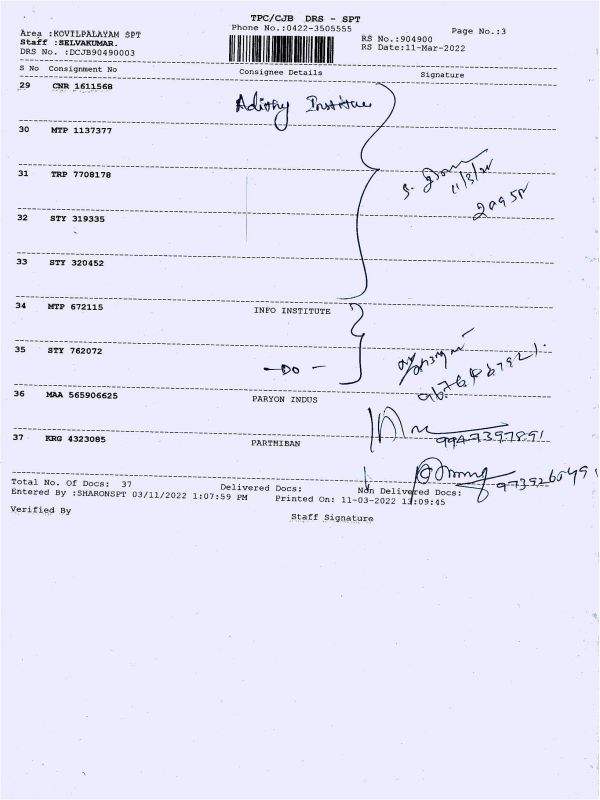 TPC/CJB DRS - SPT
Phone No.:0422-3505555
Page No.:3
Area :KOVILPALAYAM SPT
Staff :SELVAKUMAR.
DRS No. :DCJB90490003
RS No.:904900
RS Date:11-Mar-2022
S No Consignment No Consignee Details Signature
29 CNR 1611568
Adithy Institue
30 MTP 1137377
31 TRP 7708178
11/3/22
32 STY 319335
33 STY 320452
34 MTP 672115 INFO INSTITUTE
35 STY 762072
- DO -
36 MAA 565906625 PARYON INDUS
37 KRG 4323085 PARTHIBAN
9947397891
Total No. Of Docs: 37 Delivered Docs: Non Delivered Docs:
Entered By :SHARONSPT 03/11/2022 1:07:59 PM Printed On: 11-03-2022 13:09:45
Verified By Staff Signature